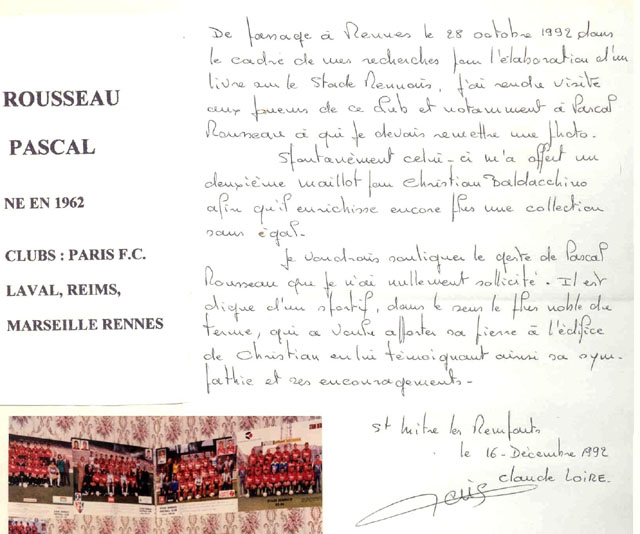 ROUSSEAU
PASCAL
NE EN 1962
CLUBS : PARIS F.C.
LAVAL, REIMS,
MARSEILLE RENNES
De passage à Rennes le 28 octobre 1992 dans
le cadre de mes recherches pour l'élaboration d'un
livre sur le Stade Rennais, j'ai rendu visite
aux joueurs de ce club et notamment à Pascal
Rousseau à qui je devais remettre une photo.
Spontanément celui-ci m'a offert un
deuxième maillot pour Christian Baldacchino
afin qu'il enrichisse encore plus une collection
sans égal.
Je voudrais souligner le geste de Pascal
Rousseau que je n'ai nullement sollicité. Il est
digne d'un sportif, dans le sens le plus noble du
terme, qui a voulu apporter sa pierre à l'édifice
de Christian en lui témoignant ainsi sa sym-
pathie et ses encouragements-
St Mitre les Remparts
le 16-Décembre 1992
Claude LOIRE.